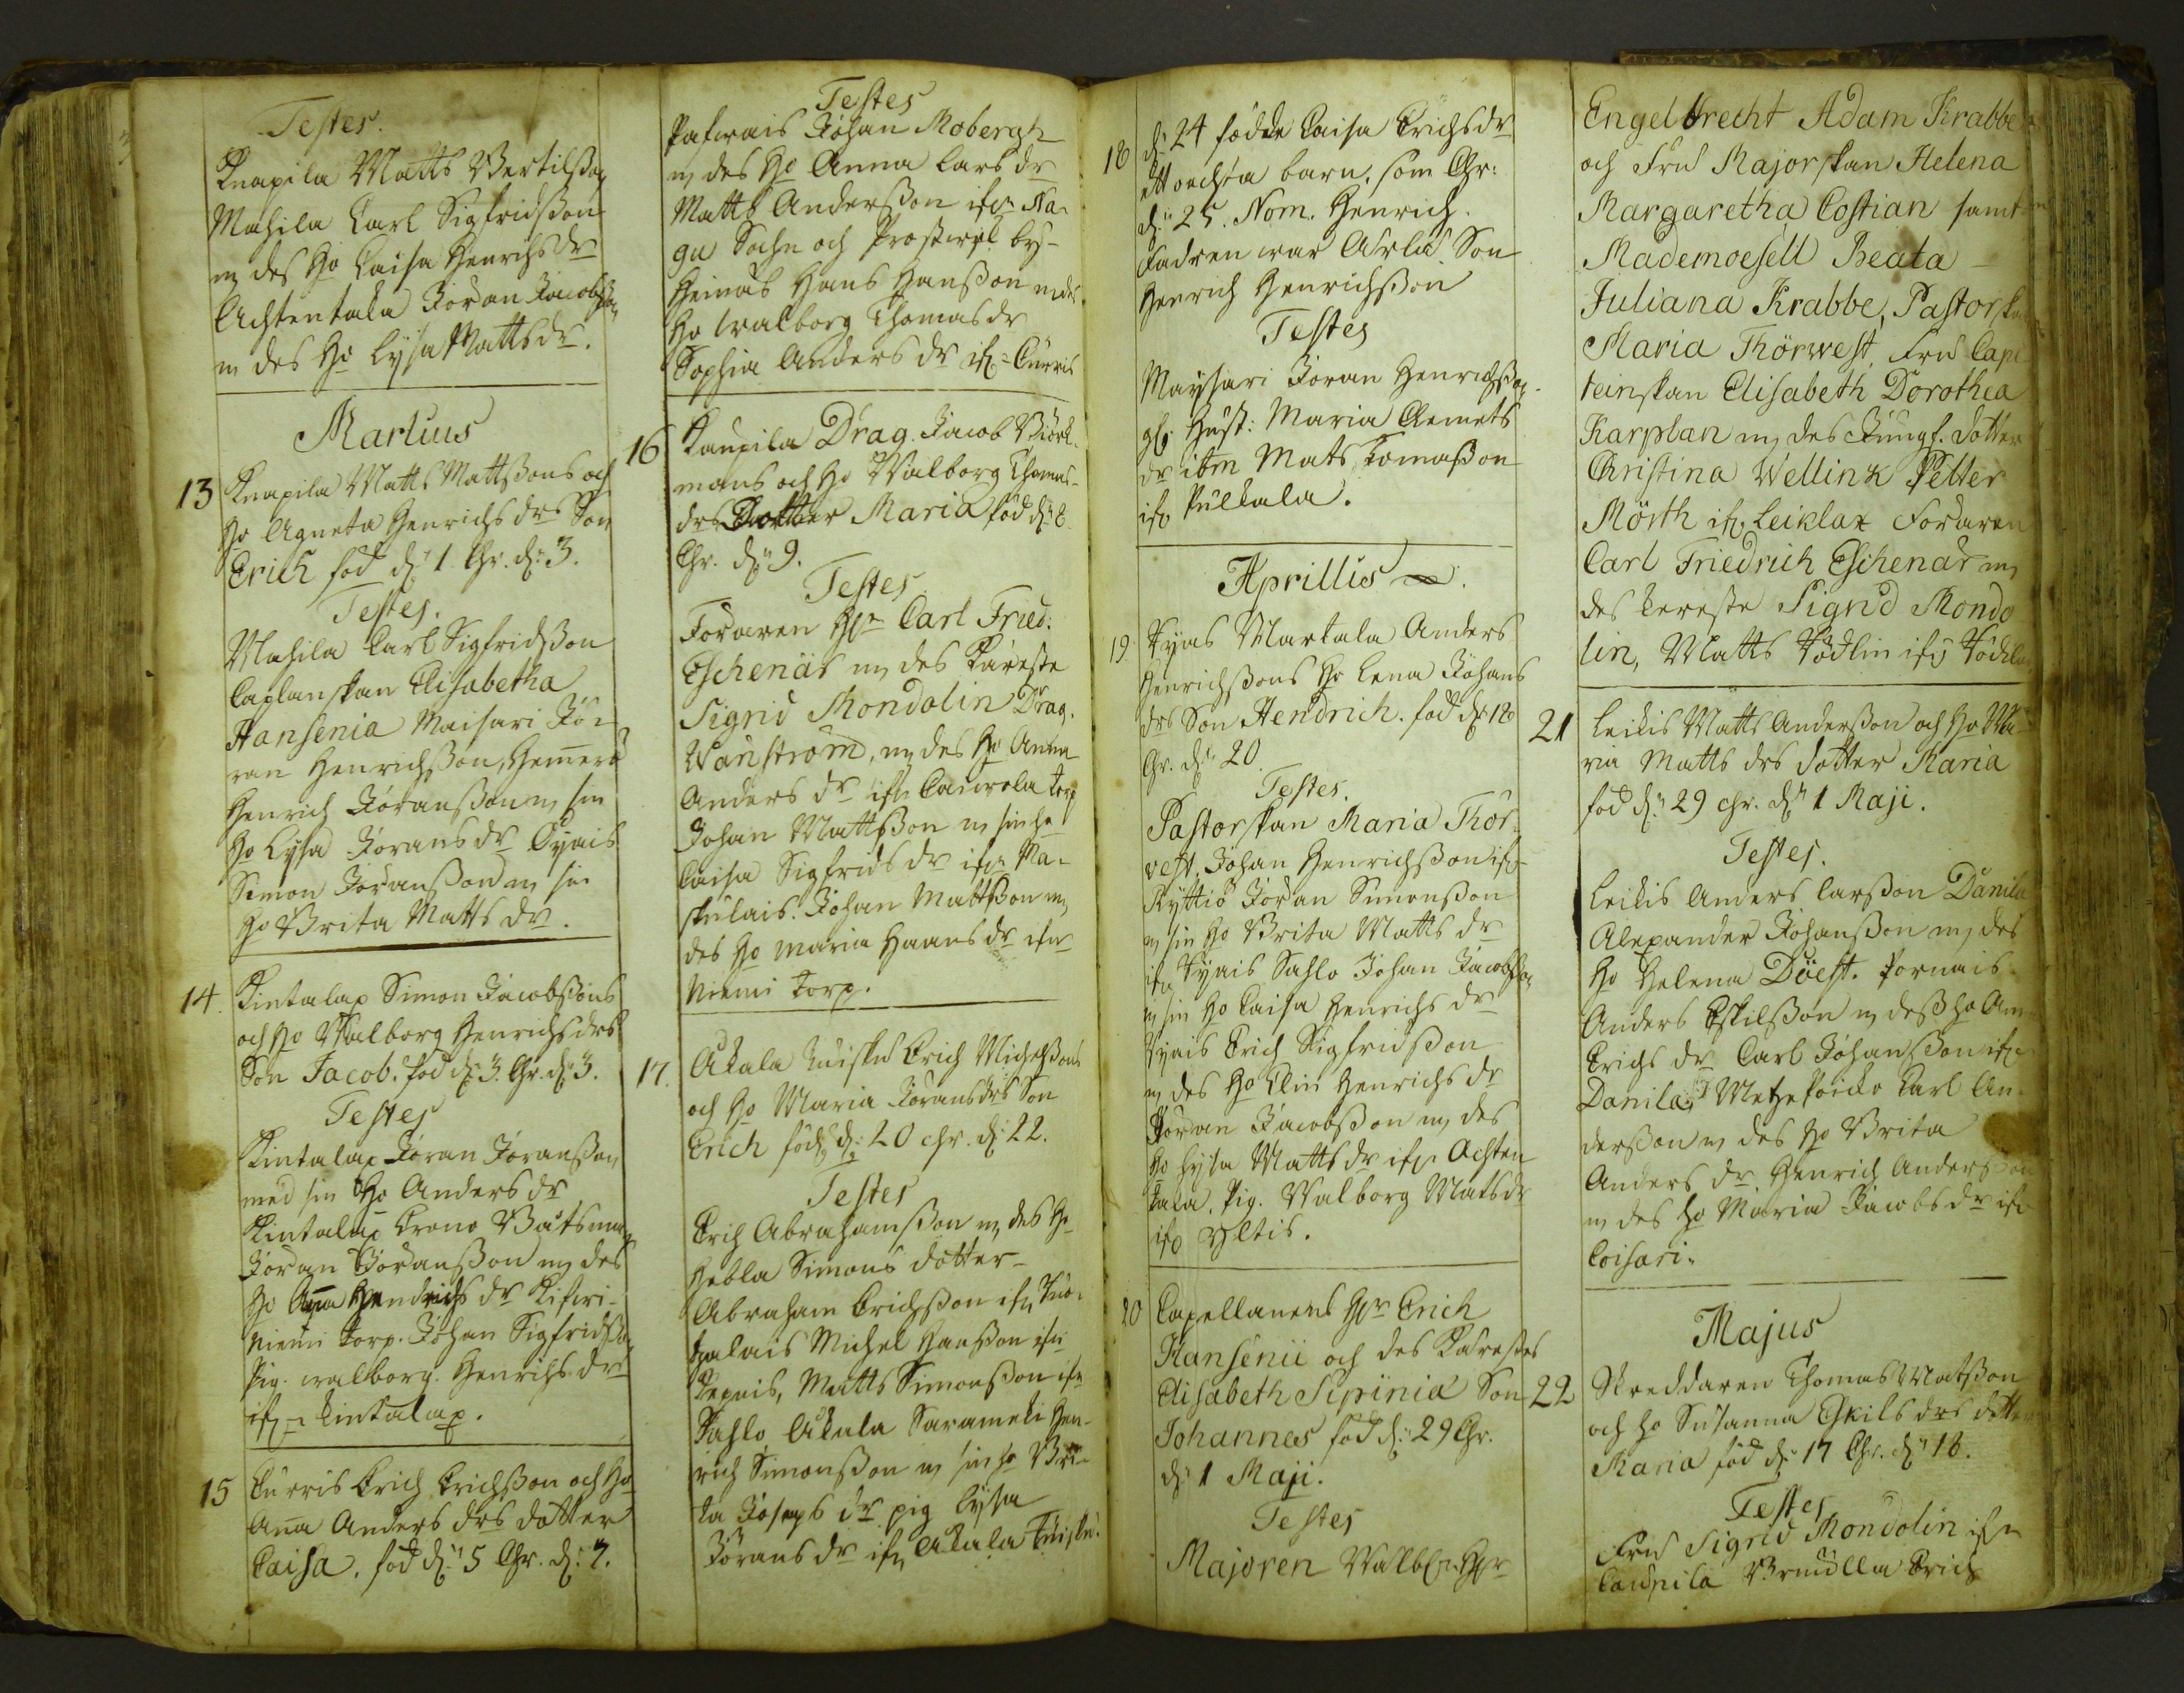 Testes.
Knapila Matts Bertilsson
Mahila Carl Sigfridsson
m des Ho Caisa Henrichsdr
Achtentaka Jöran Jacobsson
m des Ho Lysa Mattsdr.
Martius
13 Knapila Matts Mattssons och
Ho Agneta Henrichsdrs Son
Erich föd d: 1 Chr. d: 3.
Testes.
Mahila Carl Sigfridsson
Caplanskan Elisabetha
Hansenia Maisari Jö-
ran Henrichsson,
Henrich Jöransson m sin
Ho Lysa Jöransdr
Simon Jöransson m sin
Ho Brita Matts dr.
14. Kintalax Simon Jacobssons
och Ho Walborg Henrichsdrs
Son Jacob. föd d: 3. Chr. d: 3.
Testes
Kintalax Jöran Jöransson
med sin Ho Anders dr
Kintalax Crono Båtsman
Jöran Jöransson m des
Ho Ana Hendrichs dr
niemi torp. Johan Sigfridsson
Pig. walborg. Henrichs dr
ifn kintalax.
15 Curris Erich Erichsson och Ho
Ana Anders drs dotter
Caisa. föd d: 5 Chr. d: 7.
Testes
Johan Mobergh
m des Ho Anna Lars dr
Matts Andersson ifrn Na-
gu Sochn och by-
Hans Hansson m des
Ho walborg Thomasdr
Sophia Anders dr if: Curris
16 Kaupila Drag. Jacob Biörk-
mans och Ho Walborg Thomas-
drs Dotter Maria föd d: 8
Chr. d: 9.
Testes
Foraren Hr Carl Fried.
Eschenär m des Käreste
Sigrid Mondolin Drag.
Wänström, m des Ho Anna
Anders dr ifn torp
Johan Mattsson m sin ho
Caisa Sigfrids dr ifn
Johan Mattsson m
des Ho Maria Hans dr ifn
Niemi torp.
17. Ukala Erich Michelssons
och Ho Maria Jöransdrs Son
Erich född d: 20 chr. d: 22.
Testes
Erich Abrahamsson m des Ho
Hebla Simons dotter-
Abraham Erichsson ifn
Michel Hansson ifn
Matts Simonsson ifn
Sahlo Ukala Hen-
rich Simonsson m sin ho Bri-
ta Joseps dr pig Lysa
Jörans dr ifn Ukala
18 d: 24 födde Caisa Erichsdr
ett oächta barn, som Chr:
d: 25. Nom. Henrich.
Fadren war Son
Henrich Henrichsson
Testes
Maysari Jöran Henrichsson
Hust: Maria Clemets
dr ibm Mats Tomasson
ifn Pulkala.
Aprillis
19. Tyris Martala Anders
Henrichssons Ho Lena Johans
drs Son Hendrich. föd d: 18
Chr. d: 20
Testes.
Pastorskan Maria Thör-
vest, Johan Henrichsson ifn
Kyttiö Jöran Simonsson
m sin Ho Brita Matts dr
ifn Tyris Sahlo Johan Jacobsson
m sin Ho Caisa Henrichs dr
Tyris Erich Sigfridsson
m des Ho Elin Henrichs dr
Jöran Jacobsson m des
Ho Lysa Matts dr ifn Achten
taka, Pig. Valborg Matsdr
ifn Yltis.
20 Capellanens Hr Erich
Hansenii och des Kärestes
Elisabeth Sipinia Son
Johannes föd d: 29 Chr.
d: 1 Maji.
Testes
Majoren Hr
Engelbrecht Adam Krabbe
och Fru Majorskan Helena
Margaretha Costian samt
Mademoesell Beata
Juliana Krabbe, Pastorska
Maria Thörwest, Fru Cap
teinskan Elisabeth Dorothea
Karplan m des Jungf. dotter
Christina Wellink Petter
Mörth ifn Leiklax Foraren
Carl Friedrich Eschenär m
des kereste Sigrid Mondo
lin, Matts
21 Leikis Matts Andersson och Ho Ma-
ria Matts drs dotter Maria
föd d: 29 chr. d: 1 Maji.
Testes.
Leikis Anders Larsson Danila
Alexander Johansson m des
Ho Helena Döest. Pornais
Anders Eskilsson m dess ho
Erichs dr Carl Johansson ifn
Danila, Carl An-
dersson m des Ho Brita
Anders dr Henrich Andersson
m des ho Maria Jacobs dr ifn
Coisari.
Majus
22 Skreddaren Thomas Matsson
och ho Susanna Eskils drs dotter
Maria föd d: 17 Chr. d: 18.
Testes
Fru Sigrid Mondolin ifn
Caupila Erich